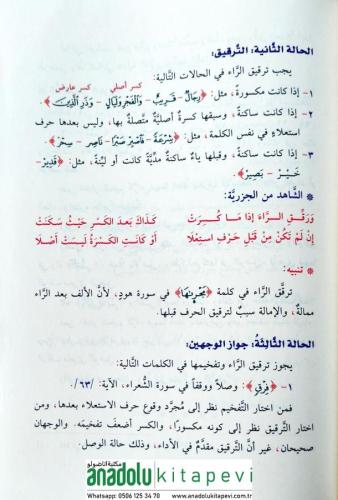 الحالة الثَّانية: التَّرقيق:
يجب ترقيق الرَّاء في الحالات التَّالية:
كسر أصلي كسر عارض
١- إذا كانت مكسورة، مثل: ﴿رِجَالٌ - قَرِيبٌ - وَالْفَجْرِ وَلَيَالٍ - وَذَرِ الَّذِينَ﴾.
٢- إذا كانت ساكنة، وسبقها كسرةٌ أصليَّة متَّصلة بها، وليس بعدها حرف
استعلاءٍ في نفس الكلمة، مثل: ﴿شِرْعَةً - فَاصْبِرْ صَبْرًا - نَاصِرٍ - سِحْرٌ﴾.
٣- إذا كانت ساكنة، وقبلها ياءٌ ساكنة مدِّيَّة كانت أو ليِّنة، مثل: ﴿قَدِيرٌ -
خَيْرٌ - بَصِيرٌ﴾.
* الشَّاهد من الجزريَّة:
وَرَقِّقِ الرَّاءَ إِذَا مَا كُسِرَتْ كَذَاكَ بَعدَ الكَسْرِ حَيْثُ سَكَنَتْ
إِنْ لَمْ تَكُنْ مِنْ قَبْلِ حَرْفِ اسْتِعْلَا أَوْ كَانَتِ الكَسْرَةُ لَيسَتْ أَصْلَا
* تنبيه:
ترقَّق الرَّاء في كلمة ﴿مَجْرَاهَا﴾ في سورة هودٍ، لأنَّ الألف بعد الرَّاء
ممالةٌ، والإمالة سببٌ لترقيق الحرف قبلها.
الحالة الثَّالثةُ: جواز الوجهين:
يجوز ترقيق الرَّاء وتفخيمها في الكلمات التَّالية:
١- ﴿فِرْقٍ﴾: وصلاً ووقفاً في سورة الشُّعراء، الآية: /٦٣/.
فمن اختار التَّفخيم نظر إلى مُجرَّد وقوع حرف الاستعلاء بعدها، ومن
اختار التَّرقيق نظر إلى كونه مكسورًا، والكسر أضعفَ تفخيمَه. والوجهان
صحيحان، غير أنَّ التَّرقيق مقدَّمٌ في الأداء، وذلك حالة الوصل.
مكتبة اناضولو
anadolukitapevi
Whatsapp: 0506 125 34 70 - www.anadolukitapevi.net